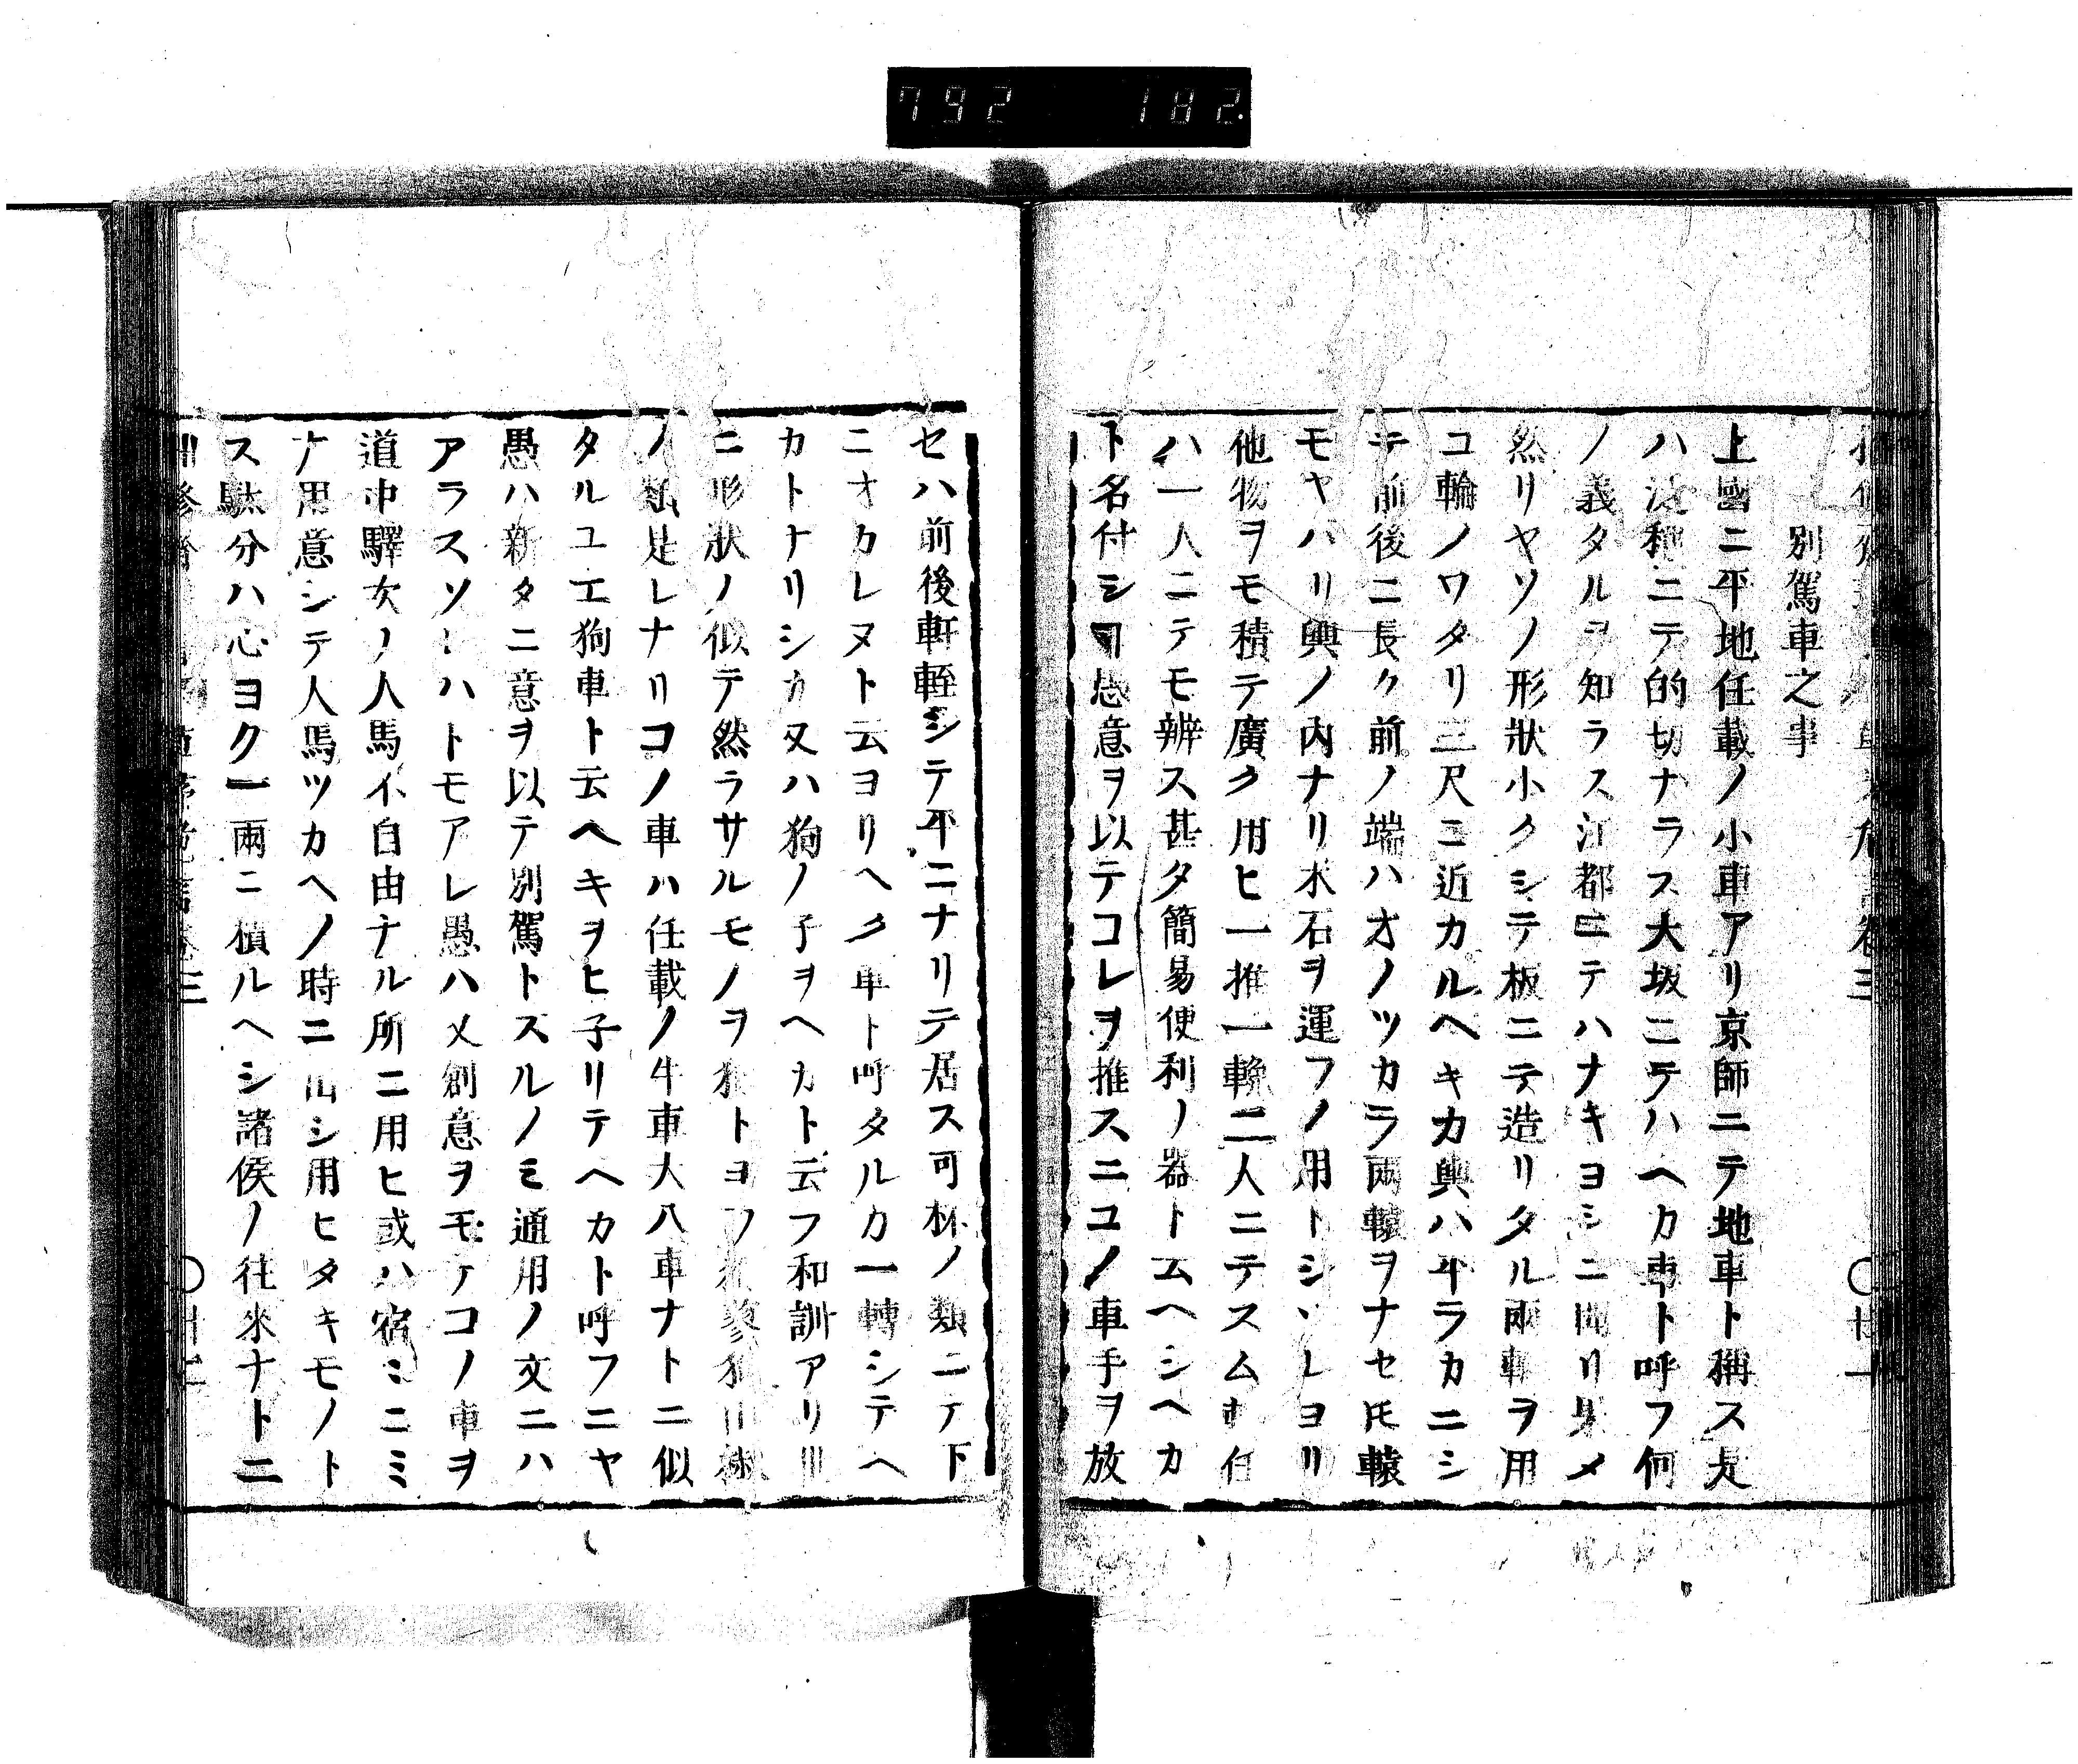 792 182.
別駕車之事
上國ニ平地任載ノ小車アリ京師ニテ地車ト稱ス是
ハ汎稱ニテ的切ナラス大坂ニテハヘカ車ト呼フ何
ノ義タルヲ知ラス江都ニテハナキヨシニ聞リ果メ
然リヤソノ形狀小クシテ板ニテ造リタル兩輪ヲ用
コ輪ノワタリ三尺ニ近カルヘキカ輿ハ平ラカニシ
テ前後ニ長ク前ノ端ハオノツカラ兩轅ヲナセ㪽轅
モヤハリ輿ノ内ナリ木石ヲ運フノ用トシヽレヨリ
他物ヲモ積テ廣ク用ヒ一推一輓二人ニテスム任
ハ一人ニテモ辨ス甚タ簡易便利ノ器ト云ヘシヘカ
ト名付シヿ愚意ヲ以テコレヲ推スニコノ車手ヲ放
セハ前後軒輊シテ平ニナリテ居ス可杯ノ類ニテ下
ニオカレヌト云ヨリヘク車ト呼タルカ一轉シテヘ
カトナリシカ又ハ狗ノ子ヲヘカト云フ和訓アリ
ニ形狀ノ似テ然ラサルモノヲ トヨフ
ノ類是レナリコノ車ハ任載ノ牛車大八車ナトニ似
タルユエ狗車ト云ヘキヲヒ子リテヘカト呼フニヤ
愚ハ新タニ意ヲ以テ別駕トスルノミ通用ノ文ニハ
アラスソレハトモアレ愚ハ又創意ヲモテコノ車ヲ
道中驛女ノ人馬不自由ナル所ニ用ヒ或ハ宿ミニミ
ナ用意シテ人馬ツカヘノ時ニ出シ用ヒタキモノト
ス駄分ハ心ヨク一兩ニ積ルヘシ諸侯ノ往來ナトニ